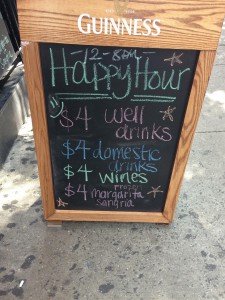 GUINNESS
12-8PM
Happy Hour
$4 well
drinks
$4 domestic
drinks
$4 wines
$4 frozen
margarita
sangria